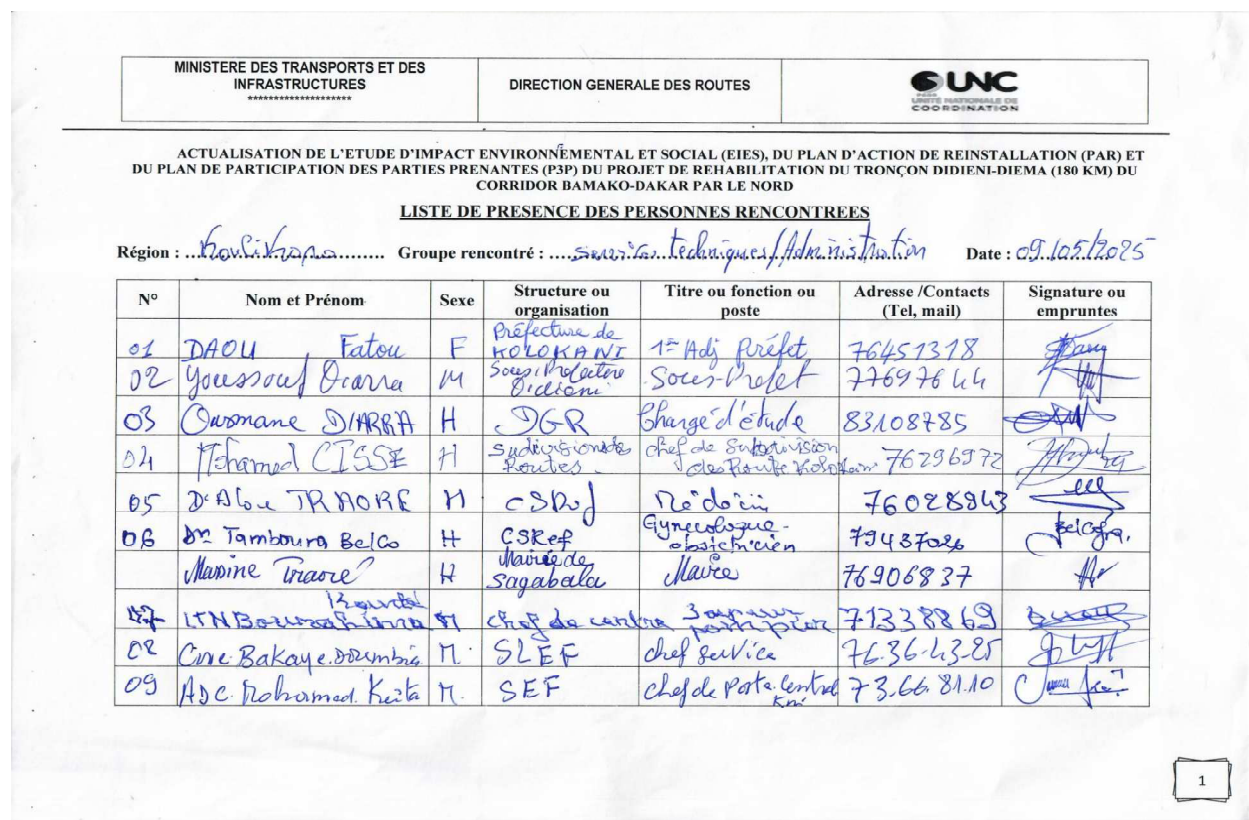 MINISTERE DES TRANSPORTS ET DES
INFRASTRUCTURES
********************
DIRECTION GENERALE DES ROUTES
UNC
UNITE NATIONALE DE
COORDINATION
ACTUALISATION DE L'ETUDE D'IMPACT ENVIRONNEMENTAL ET SOCIAL (EIES), DU PLAN D'ACTION DE REINSTALLATION (PAR) ET
DU PLAN DE PARTICIPATION DES PARTIES PRENANTES (P3P) DU PROJET DE REHABILITATION DU TRONÇON DIDIENI-DIEMA (180 KM) DU
CORRIDOR BAMAKO-DAKAR PAR LE NORD
LISTE DE PRESENCE DES PERSONNES RENCONTREES
Région : Koulikoro Groupe rencontré : services techniques/Administration Date : 09/05/2025
N° Nom et Prénom Sexe Structure ou organisation Titre ou fonction ou poste Adresse /Contacts (Tel, mail) Signature ou empruntes
01 DAOU Fatou F Préfecture de KOLOKANI 1e Adj préfet 76451318
02 Youssouf M Sous-Préfecture Sous-Préfet 77697644
03 Ousmane DIARRA H DGR Chargé d'étude 83108785
04 Mohamed CISSE H Routes chef de Subdivision des Route 76296972
05 Dr Alou TRAORE H CSRef Médecin 76028843
06 Dr Tamboura Belco H CSRef Gynecologue-obstetricien 79437026
Traoré H Mairie de Sagabala Maire 76906837
07 LTN M chef de centre 71338869
08 Bakaye Doumbia M. SLEF chef service 76.36.43.25
09 ADC Mohamed Keita M. SEF chef de Poste Central 73.66.81.10
1